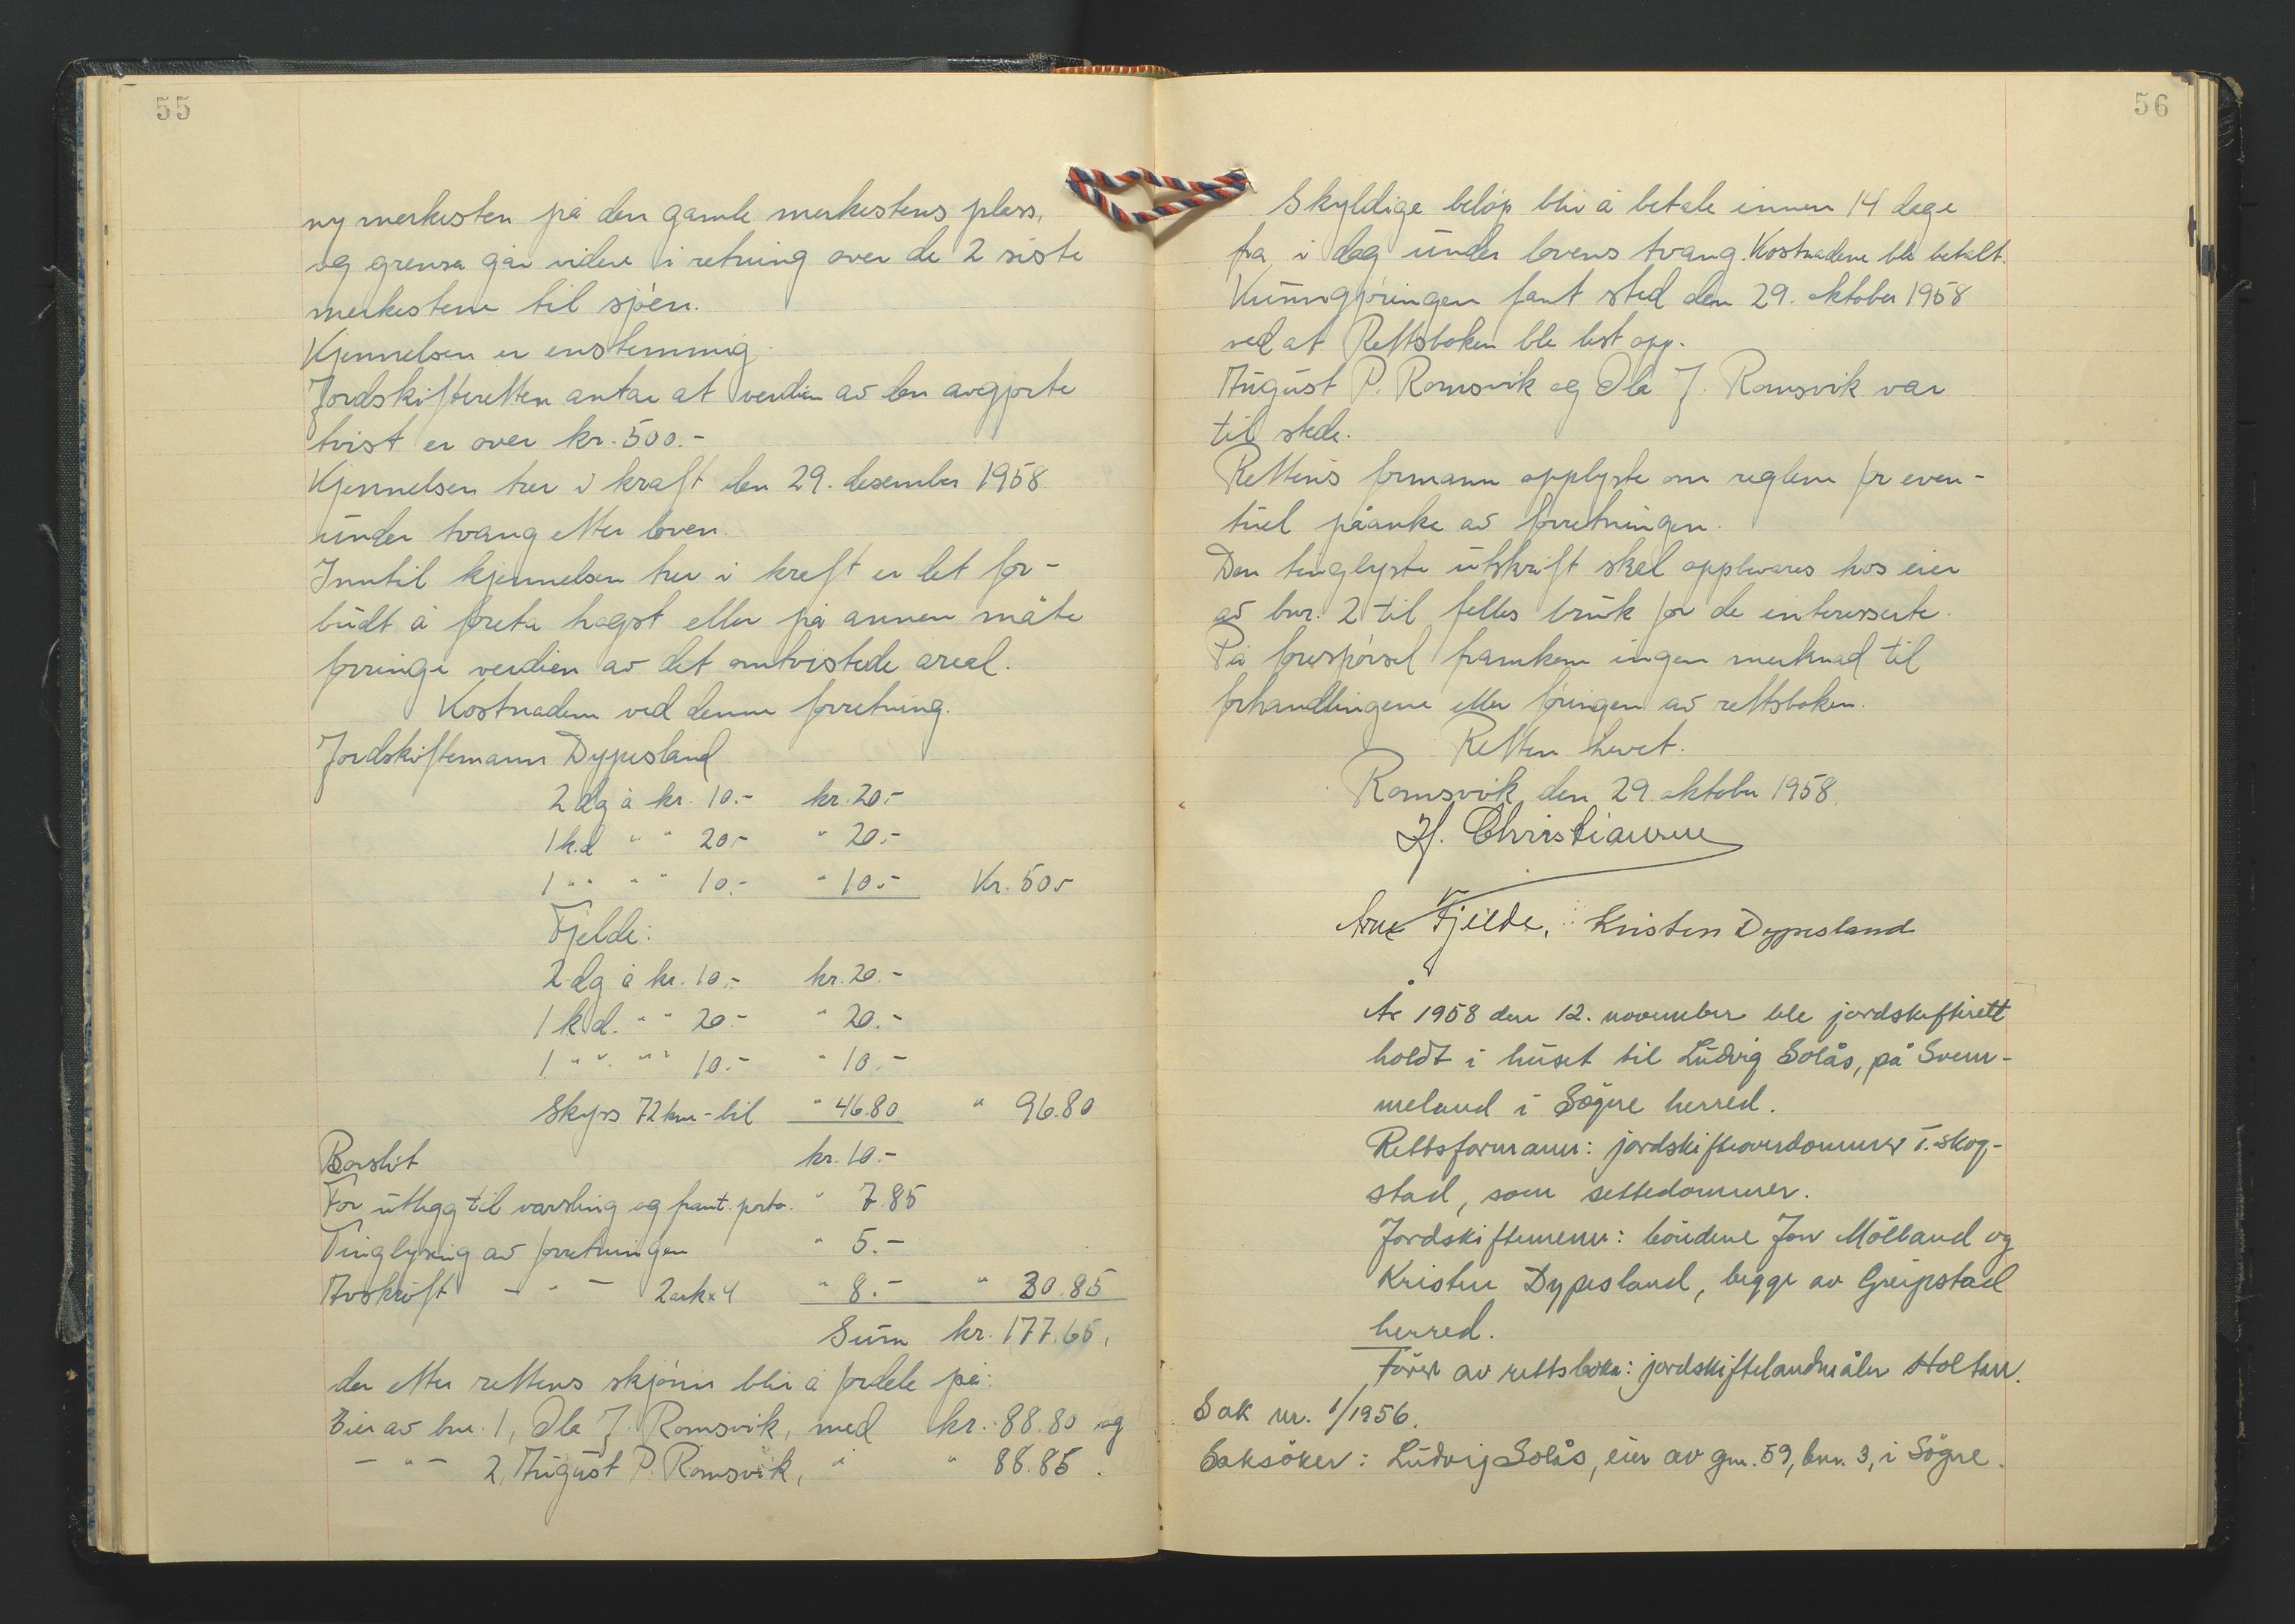 55
ny merkesten på den gamle merkestens plass,
og grensa går videre i retning over de 2 siste
merkestene til sjøen.
Kjennelsen er enstemmig.
Jordskifteretten antar at verdien av den avgjorte
tvist er over kr. 500.-
Kjennelsen trer i kraft den 29. desember 1958
under tvang etter loven.
Inntil kjennelsen trer i kraft er det for-
budt å foreta hogst eller på annen måte
forringe verdien av det omtvistede areal.
Kostnadene ved denne forretning.
Jordskiftemann Dypesland
2 dg à kr. 10.- kr. 20.-
1 k.d " " 20.- " 20.-
1 " " " " 10.- " 10.- Kr. 50.-
Fjelde:
2 dg à kr. 10.- kr. 20.-
1 k.d. " " 20.- " 20.-
1 " " " " 10.- " 10.-
Skyss 72 km - bil " 46.80 " 96.80
Bordslit kr. 10.-
For utlegg til varsling og frank. porto. " 7.85
Tinglysing av forretningen " 5.-
Avskrift - " - 2 ark x 4 " 8.- " 30.85
Sum kr. 177.65.
der etter rettens skjønn blir å fordele på:
Eier av bnr. 1, Ola J. Romsvik, med kr. 88.80 og
- " - 2, August P. Romsvik, " " 88.85.
56
Skyldige beløp blir å betale innen 14 dage
fra i dag under lovens tvang. Kostnadene ble betalt.
Kunngjøringen fant sted den 29. oktober 1958
ved at Rettsboken ble lest opp.
August P. Romsvik og Ola J. Romsvik var
til stede.
Rettens formann opplyste om reglene for even-
tuel påanke av forretningen.
Den tinglyste utskrift skal oppbevares hos eier
av bnr. 2 til felles bruk for de interesserte.
På forespørsel framkom ingen merknad til
forhandlingene eller føringen av rettsboken.
Retten hevet.
Romsvik den 29. oktober 1958.
H. Christiansen
Arne Fjelde, Kristen Dypesland
År 1958 den 12. november ble jordskifterett
holdt i huset til Ludvig Solås, på Svem-
meland i Søgne herred.
Rettsformann: jordskifteoverdommer T. Skog-
stad, som settedommer.
Jordskiftemenn: bøndene Jon Mølland og
Kristen Dypesland, begge av Greipstad
herred.
Fører av rettsboka: jordskiftelandmåler Holten.
Sak nr. 1/1956.
Saksøker: Ludvig Solås, eier av gnr. 59, bnr. 3, i Søgne.